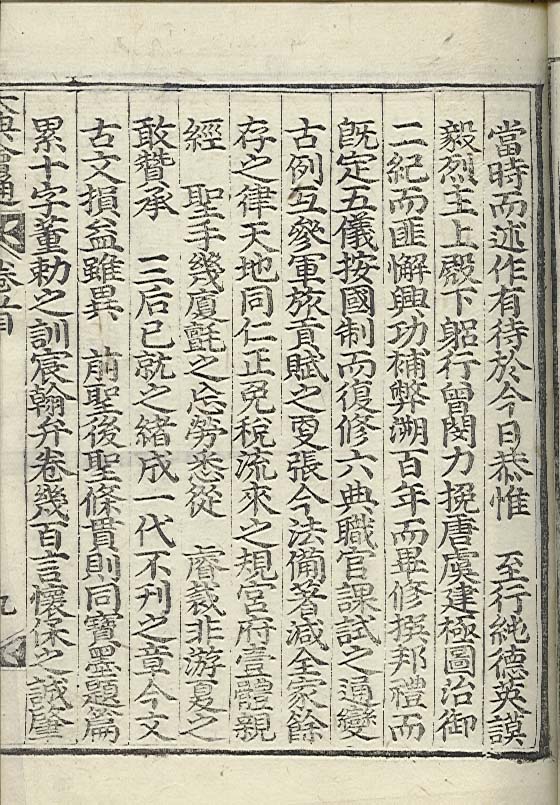 當時而述作有待於今日恭惟 至行純德英謨
毅烈主上殿下躬行曾閔力挽唐虞建極圖治御
二紀而匪懈興功補弊溯百年而畢修撰邦禮而
旣定五儀按國制而復修六典職官課試之通變
古例互參軍旅貢賦之更張今法備著減全家餘
存之律天地同仁正免稅流來之規宮府壹體親
經 聖手幾廈氈之忘勞悉從 睿裁非游夏之
敢贊承 三后已就之緖成一代不刊之章今文
古文損益雖異 前聖後聖條貫則同寶墨題篇
累十字董勅之訓宸翰弁卷幾百言懷保之誠肆
大典會通 卷首 九